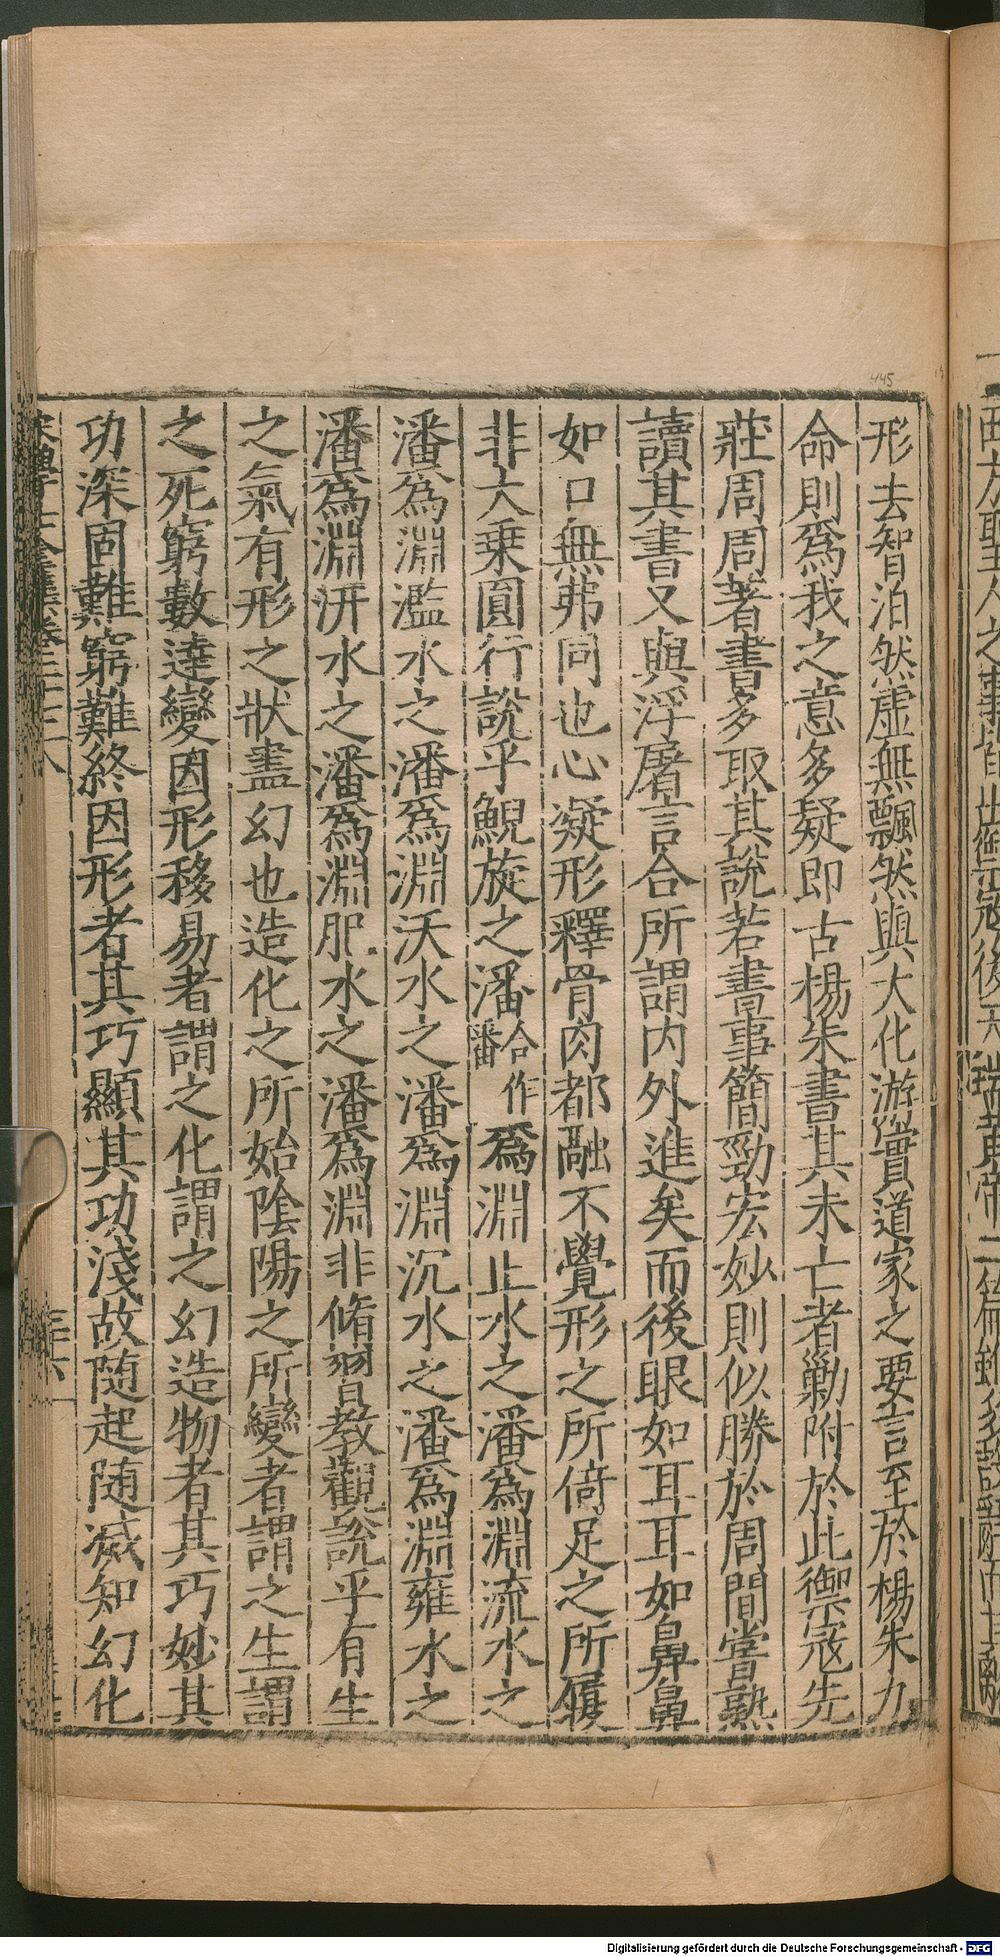 形去智泊然虛無飄然與大化游實道家之要言至於楊朱力
命則爲我之意多疑即古楊朱書其未亡者勦附於此禦冦先
莊周周著書多取其說若書事簡勁宏妙則似勝於周間嘗熟
讀其書又與浮屠言合所謂内外進矣而後眼如耳耳如鼻鼻
如口無弗同也心凝形釋骨肉都融不覺形之所倚足之所履
非大乗圓行說乎鯢旋之潘合作潘爲淵止水之潘爲淵流水之
潘爲淵濫水之潘爲淵沃水之潘爲淵沉水之潘爲淵雍水之
潘爲淵汧水之潘爲淵肥水之潘爲淵非脩習教觀說乎有生
之氣有形之狀盡幻也造化之所始陰陽之所變者謂之生謂
之死窮數達變因形移易者謂之化謂之幻造物者其巧妙其
功深固難窮難終因形者其巧顯其功淺故随起随滅知幻化
445
Digitalisierung gefördert durch die Deutsche Forschungsgemeinschaft - DFG